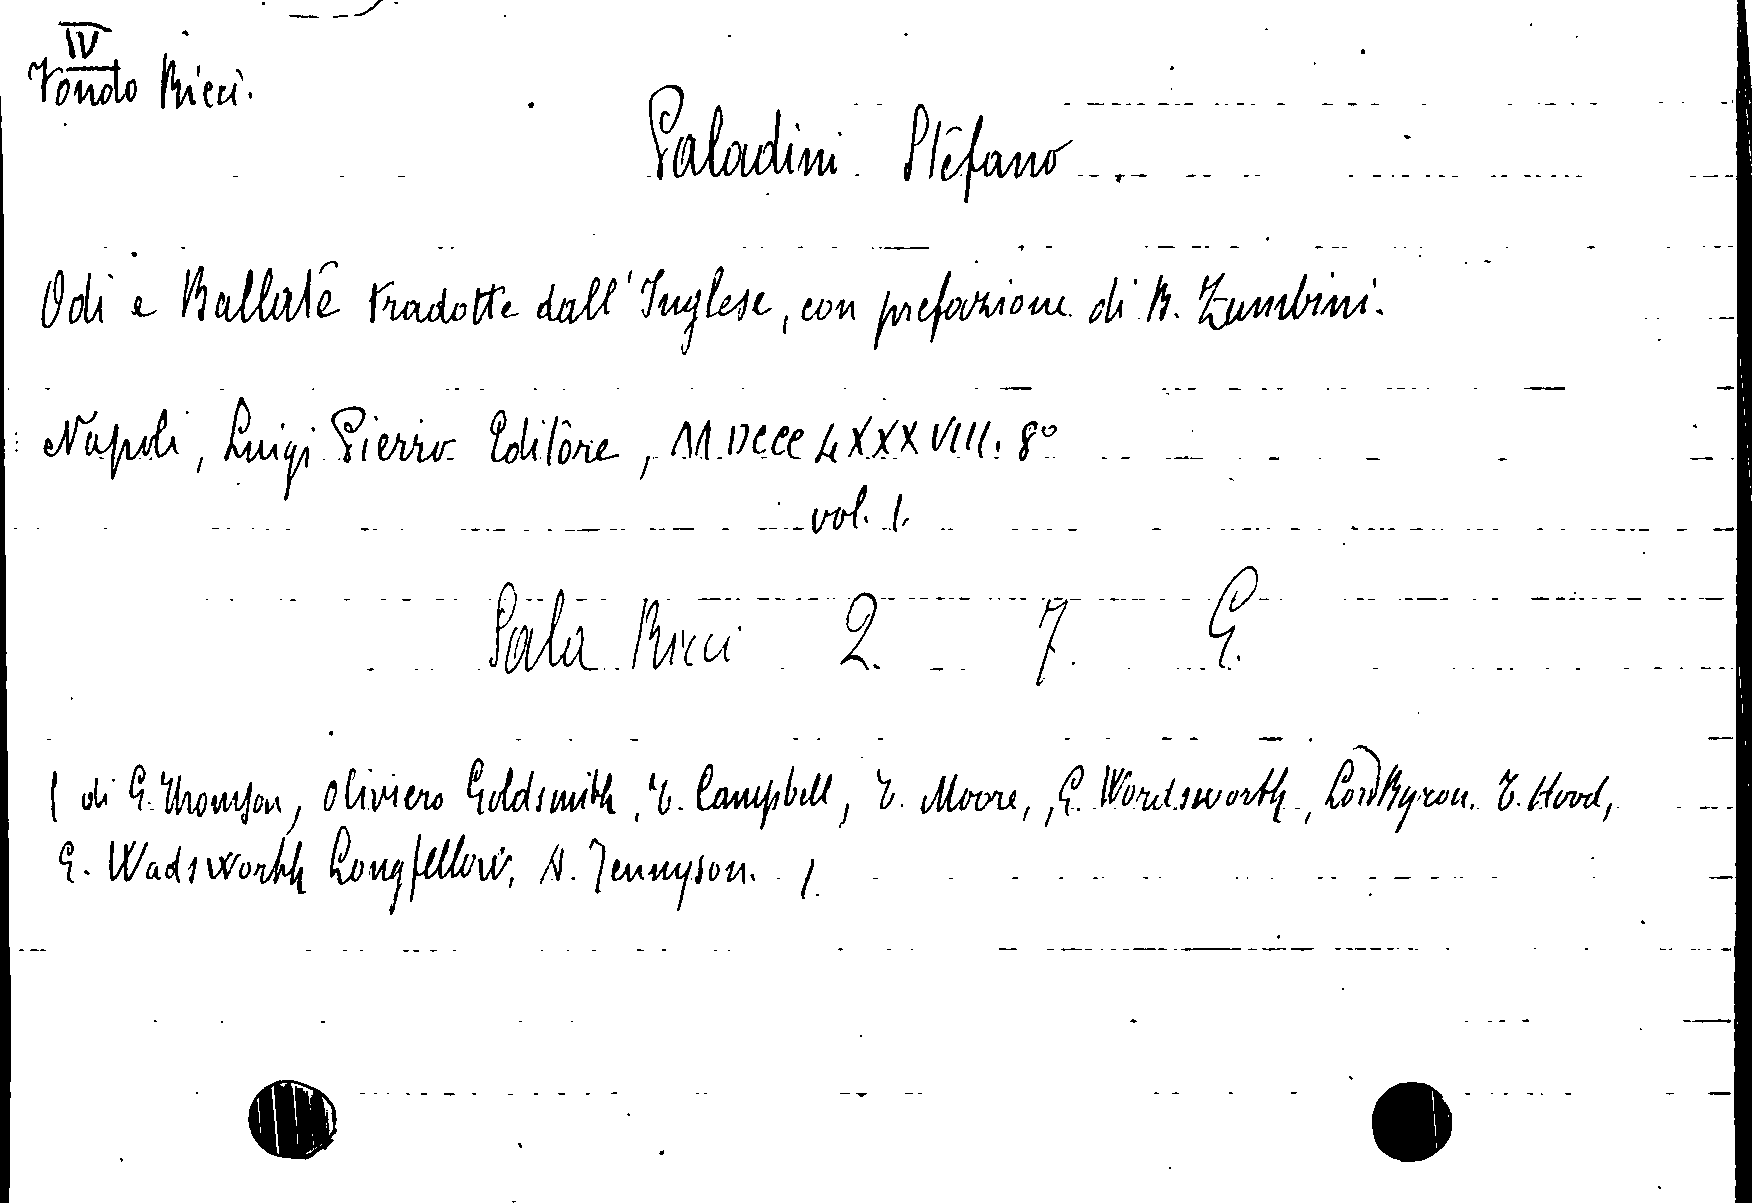 IV
Fondo Ricci.
Paladini Stefano
Odi e Ballate tradotte dall'Inglese, con prefazione di B. Zumbini.
Napoli, Luigi Pierro Editore, MDCCCLXXXVIII. 8°
vol. 1.
Sala Ricci 2. 7. G.
( di G. Thomson, Oliviero Goldsmith, T. Campbell, T. Moore, G. Wordsworth, Lord Byron. T. Hood,
E. Wadsworth Longfellow, A. Tennyson. )